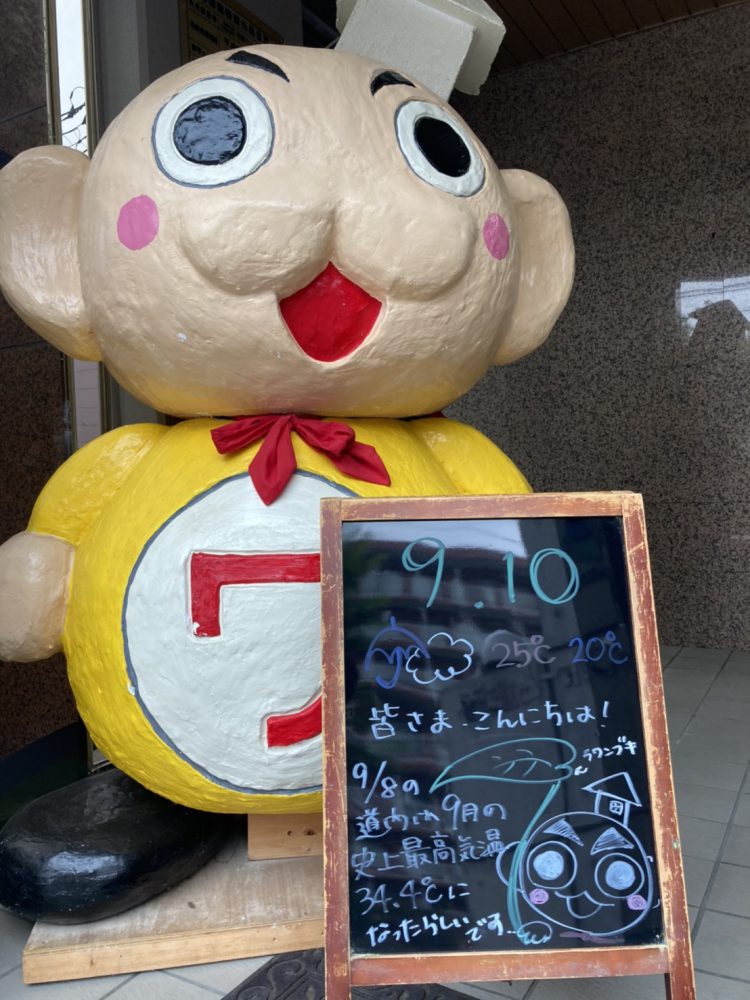 9.10
25℃ 20℃
皆さま、こんにちは!
ラワンブキ
9/8の
道内は9月の
史上最高気温
34.4℃に
なったらしいです…
ワ